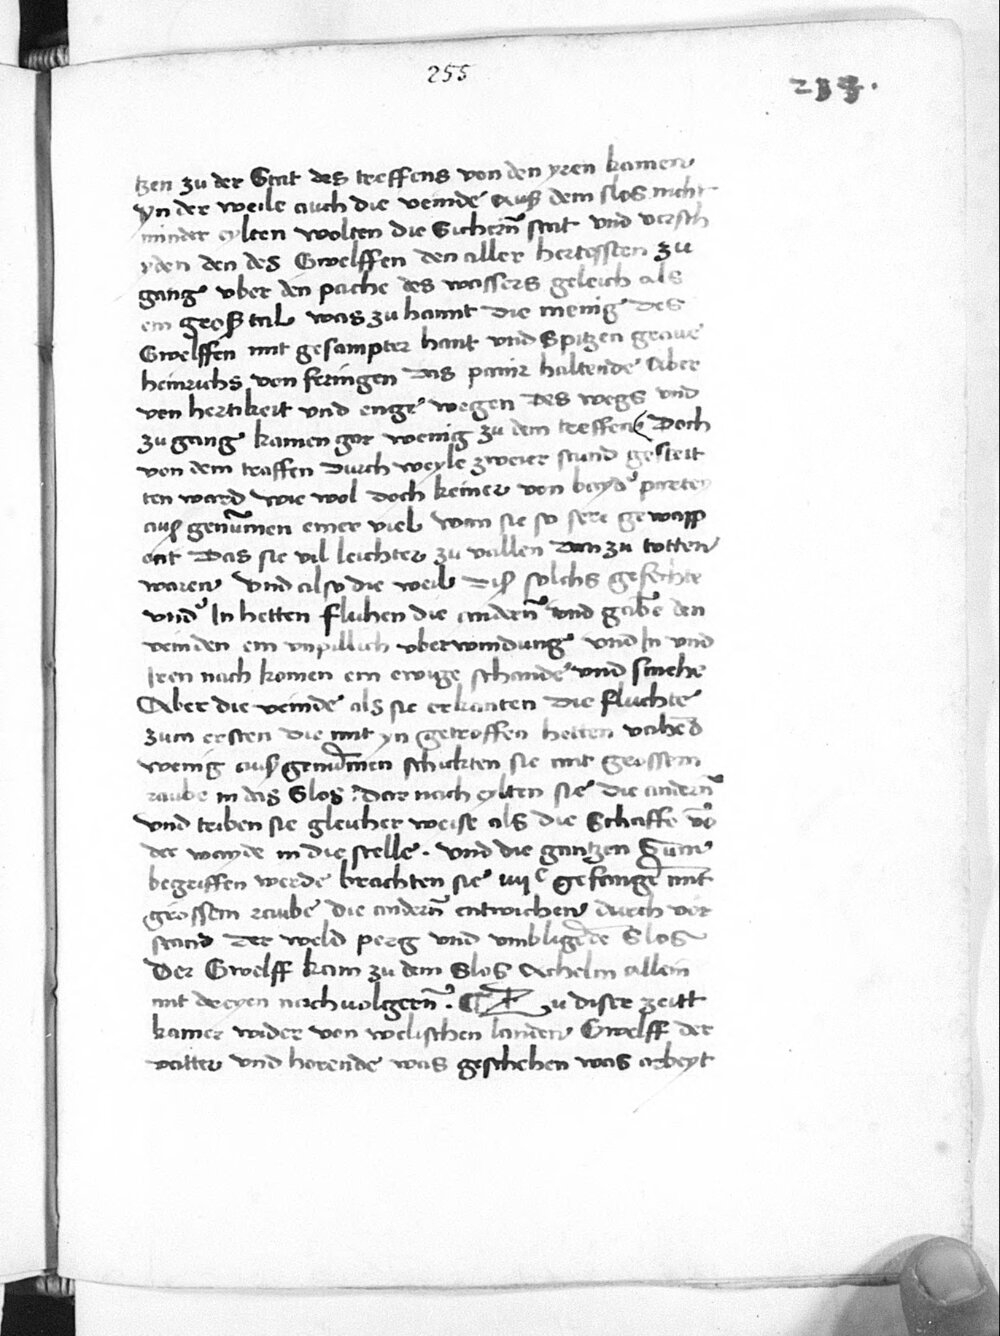 255
233.
tzen zu der Stat des treffens von den yren kamen
yn der weile auch die veinde auß dem slos nicht
minder eylten wolten die Sichern̄ stat und versch
yden den des Gwelffen den aller hertossten zu
gang vber den pache des wassers geleich als
ein groß tal was zu hannt die menig des
Gwelffen mit gesampter hant und Spitzen graue
heinrichs von feringen das panir haltende Aber
von hertikeit und enge wegen des wegs und
zugang kamen gar wenig zu dem treffen Doch
von dem traffen durch weyle zweier stund gestrit
ten ward wie wol doch keiner von beyd' partey
auß genūmen einer viel wan sie so sere gewapp
ent das sie vil leichter zu vallen dan zu totten
waren und also die weil diß solchs gefechte
vnd' In hetten fluhen die andern̄ und gabē den
veinden ein vnpillich vberwindung und In und
Iren nach komen ein ewige schande und smehe
Aber die veinde als sie erkanten die fluchte
zum ersten die mit yn getroffen hetten vahēd
wenig auß genūmen schickten sie mit grossem
raube in das Slos dar nach eylten sie die andern̄
und triben sie gleicher weise als die Schaffe vō
der wayde in die stelle . und die gantzen Sūm
begriffen werde brachten sie iiijc gefangē mit
grossem raube die andern̄ entwichen durch vor
stand der weld perg und vmbligēde Slos
Der Gwelff kam zu dem Slos Achelm allein
mit dreyen nachvolgern̄ . ¶ Zu diser zeitt
kamer wider von welischen landen Gwelff der
vatter und horende was geschehen was arbeyt